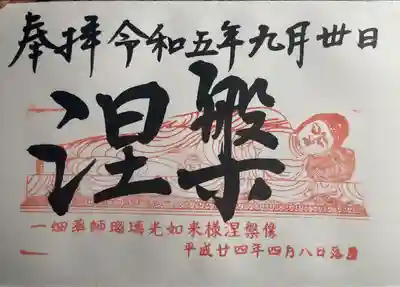 奉拝 令和五年九月丗日
涅槃
一畑薬師瑠璃光如来様涅槃像
平成廿四年四月八日落慶